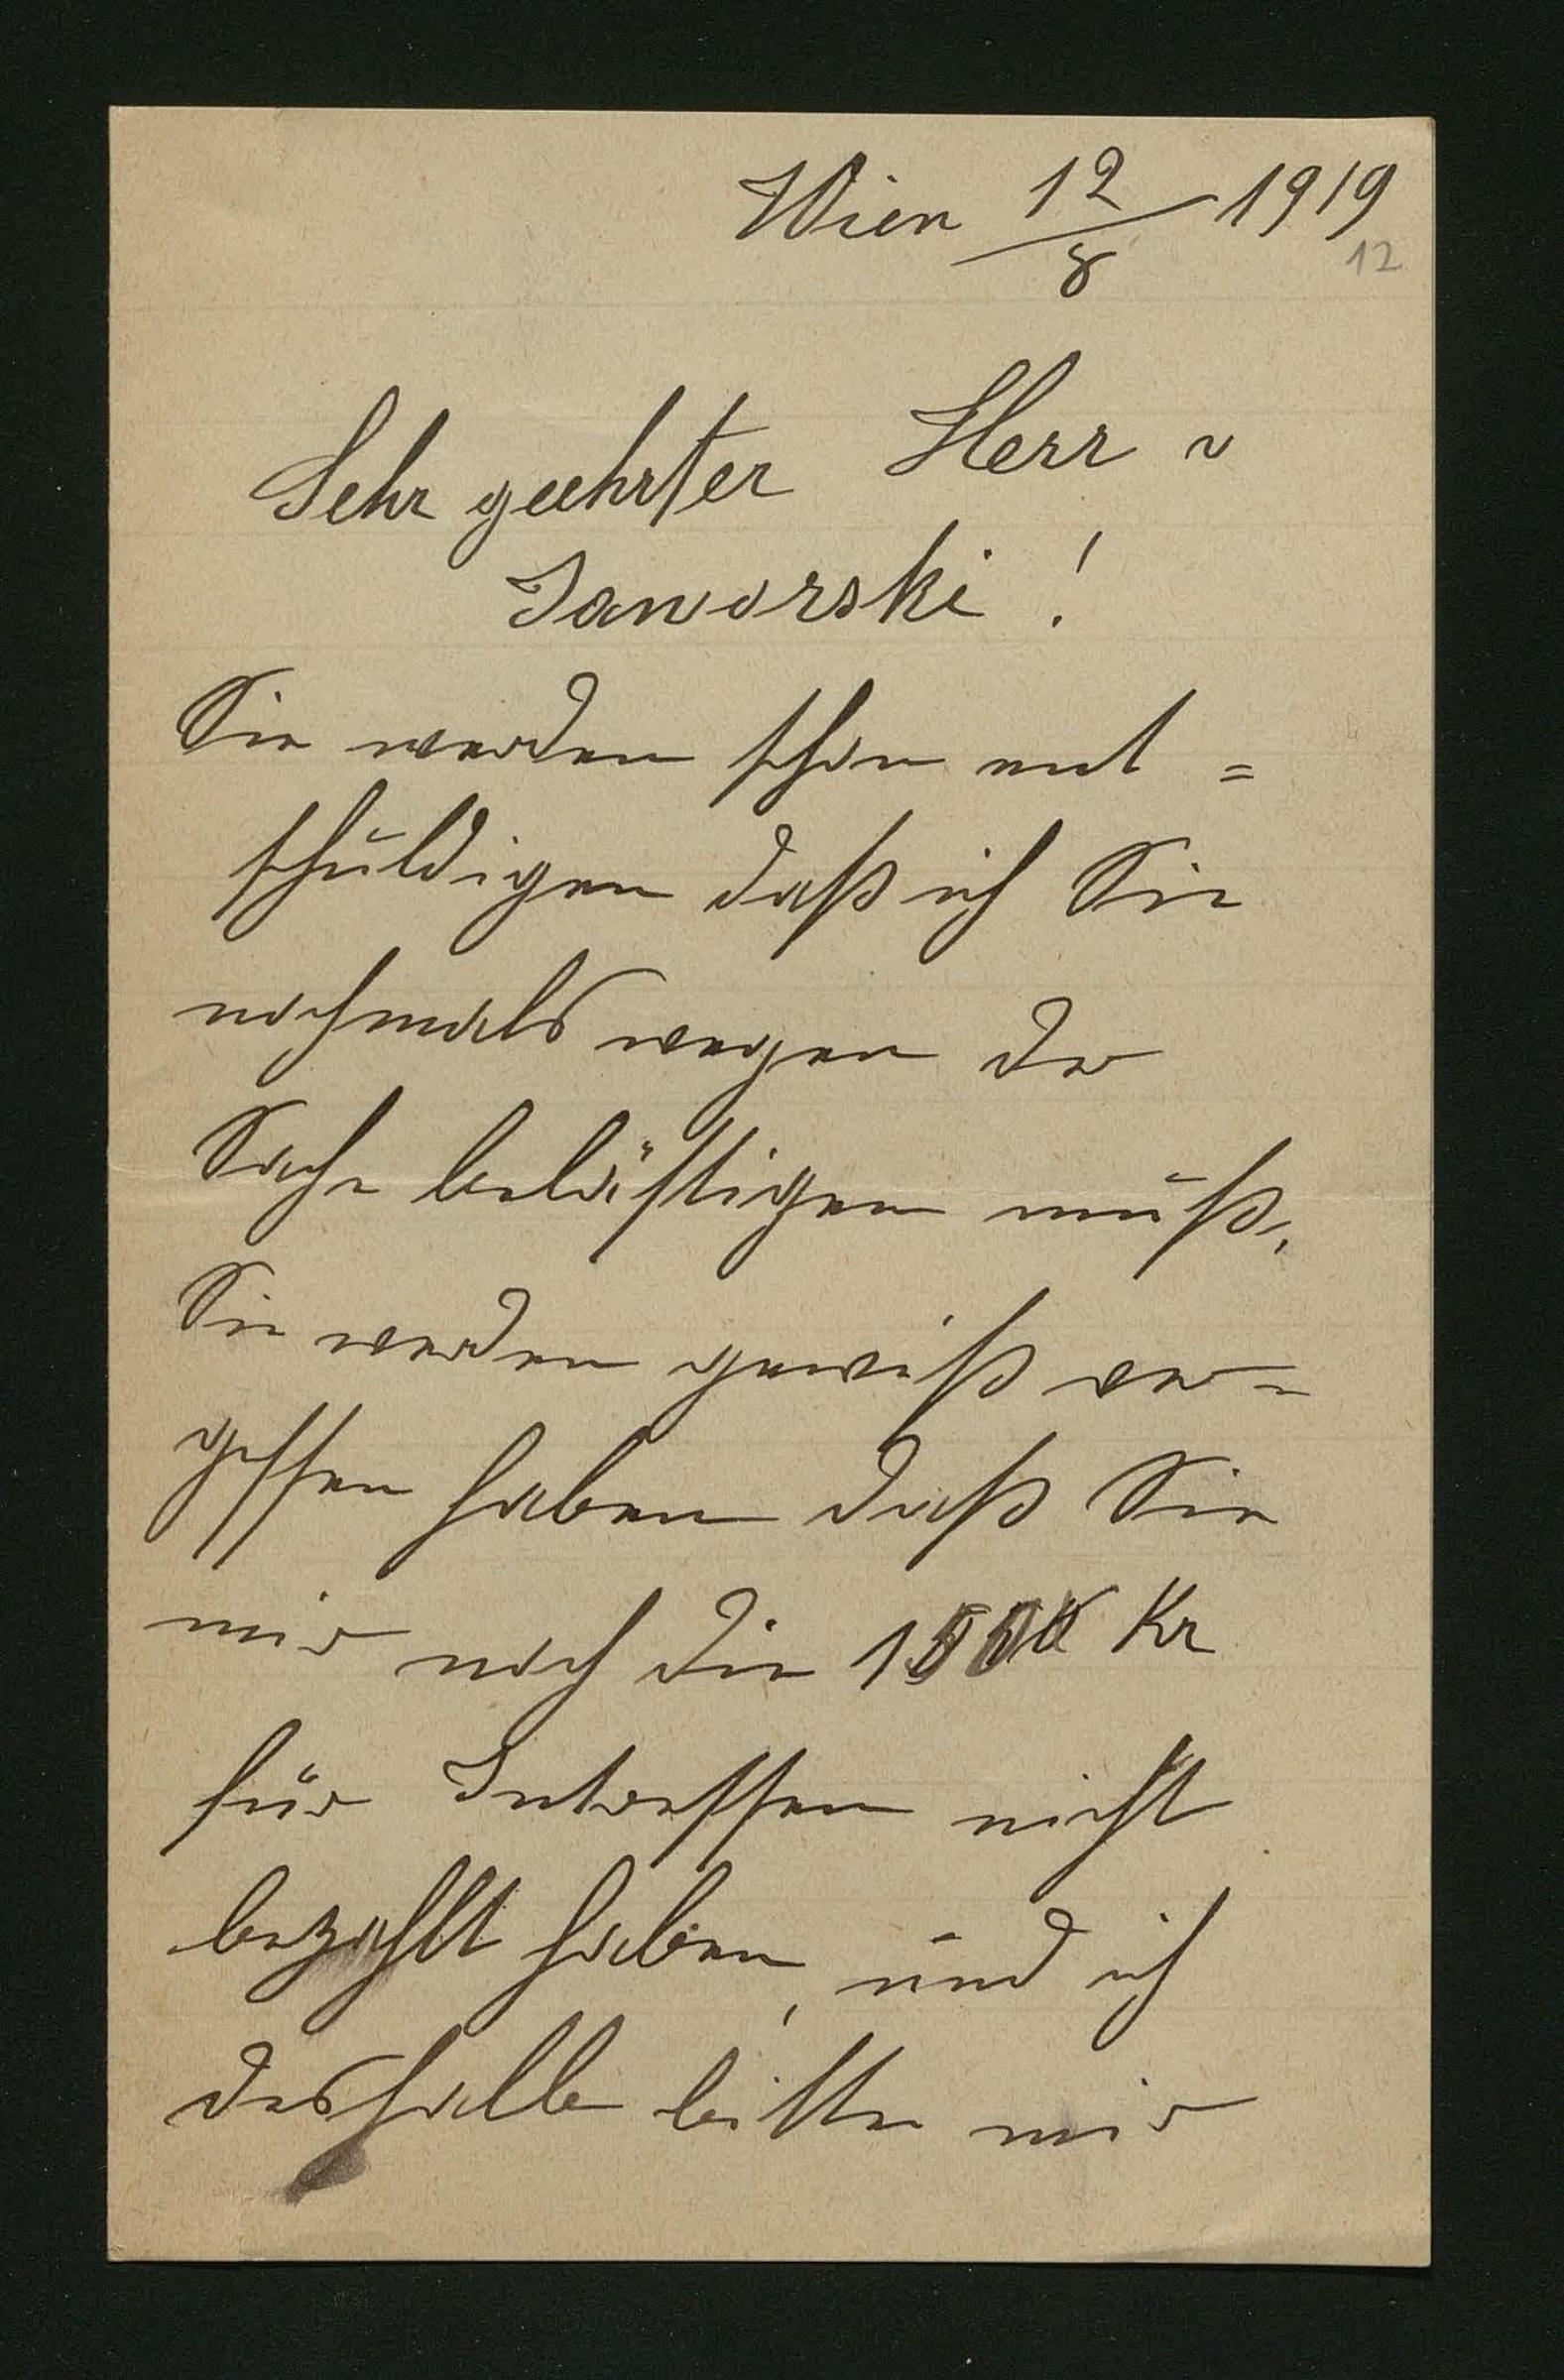 Wien 12/8 1919
12
Sehr geehrter Herr v
Jaworski!
Sie werden schon ent=
schuldigen daß ich Sie
nochmals wegen der
Sache belästigen muß.
Sie werden gewiß ver=
gessen haben daß Sie
mir noch die Kr
für Intressen nicht
bezahlt haben, und ich
deshalb bitte mir